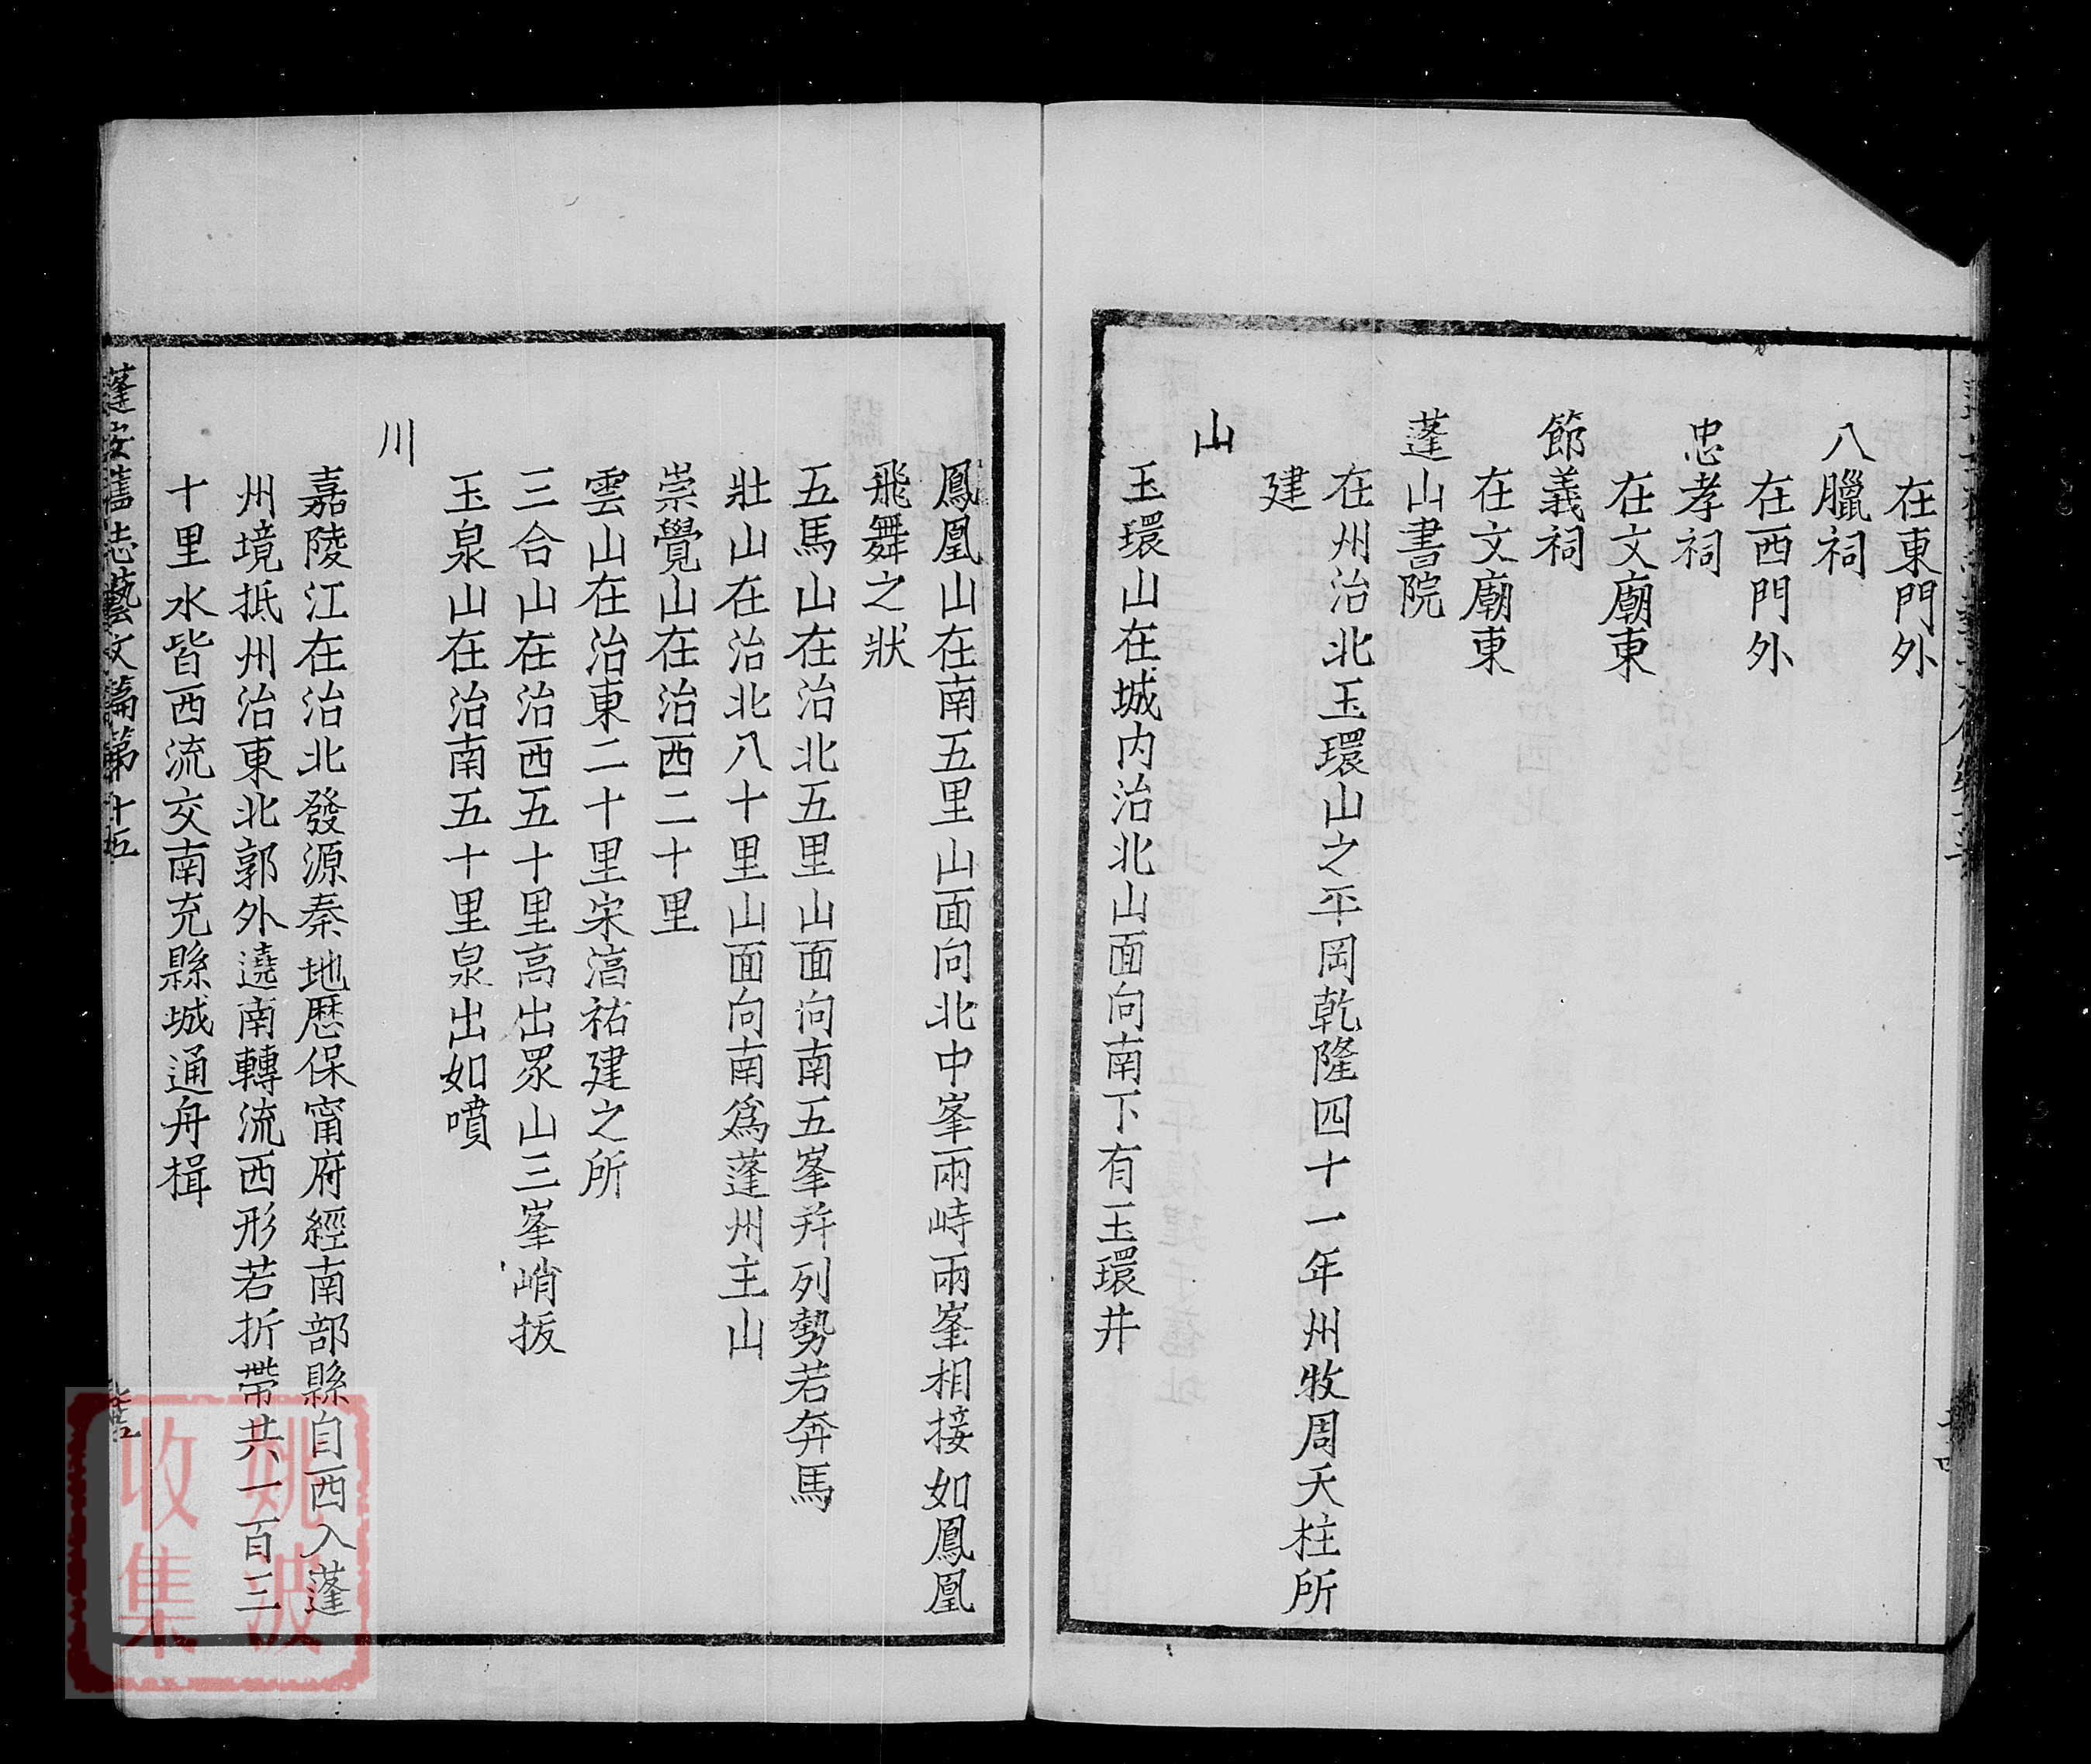 在東門外
八臘祠
在西門外
忠孝祠
在文廟東
節義祠
在文廟東
蓬山書院
在州治北玉環山之平岡乾隆四十一年州牧周天柱所
建
山
玉環山在城内治北山面向南下有玉環井
鳳凰山在南五里山面向北中峯兩峙兩峯相接如鳳凰
飛舞之狀
五馬山在治北五里山面向南五峯幷列勢若奔馬
壯山在治北八十里山面向南爲蓬州主山
崇覺山在治西二十里
雲山在治東二十里宋湻祐建之所
三合山在治西五十里高出眾山三峯峭拔
玉泉山在治南五十里泉出如噴
川
嘉陵江在治北發源秦地歷保甯府經南部縣自西入蓬
州境抵州治東北郭外遶南轉流西形若折帶共一百三
十里水皆西流交南充縣城通舟楫
蓬安舊志藝文篇第十五
姚波
收集